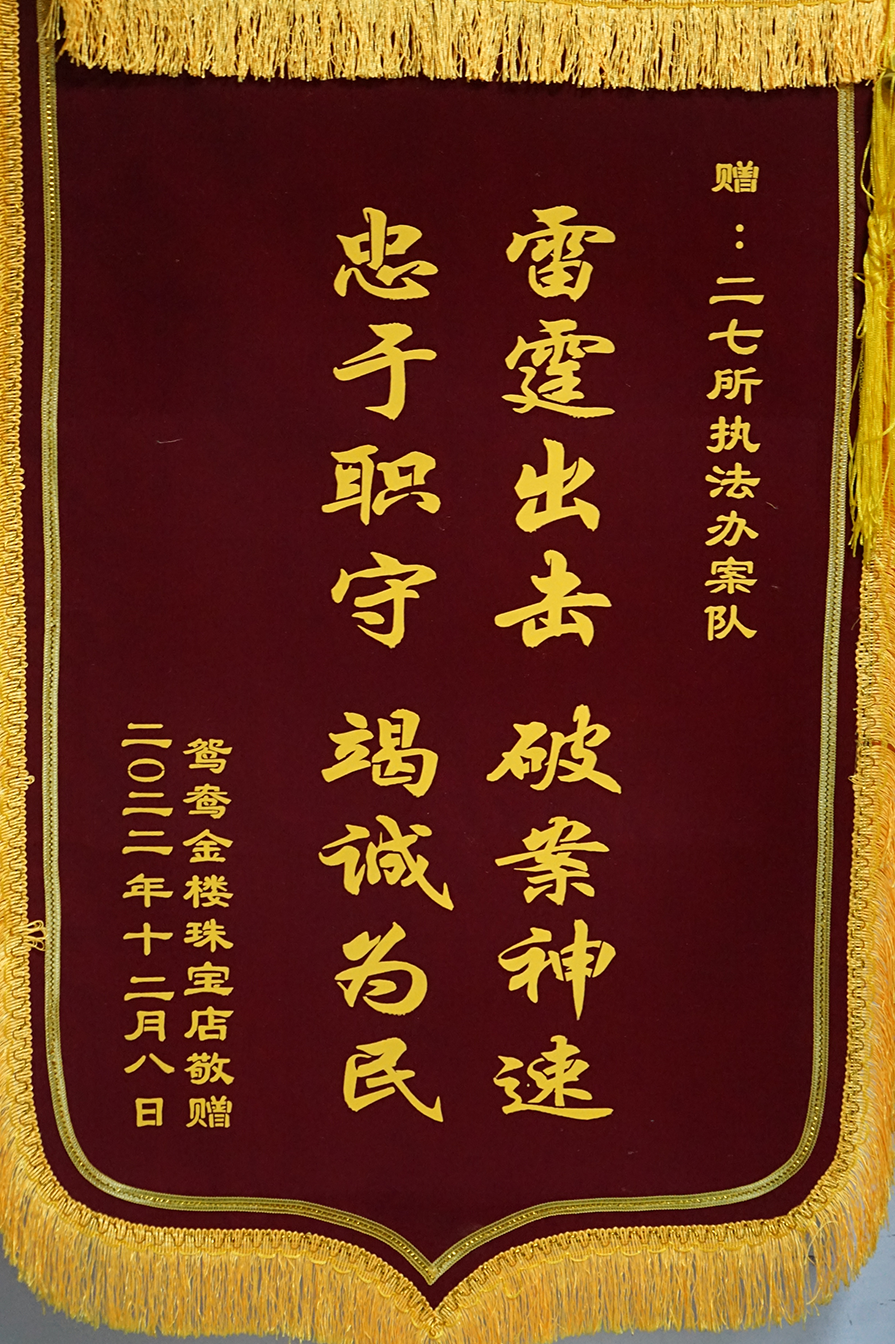 赠：二七所执法办案队
雷霆出击 破案神速
忠于职守 竭诚为民
鸳鸯金楼珠宝店敬赠
二〇二二年十二月八日